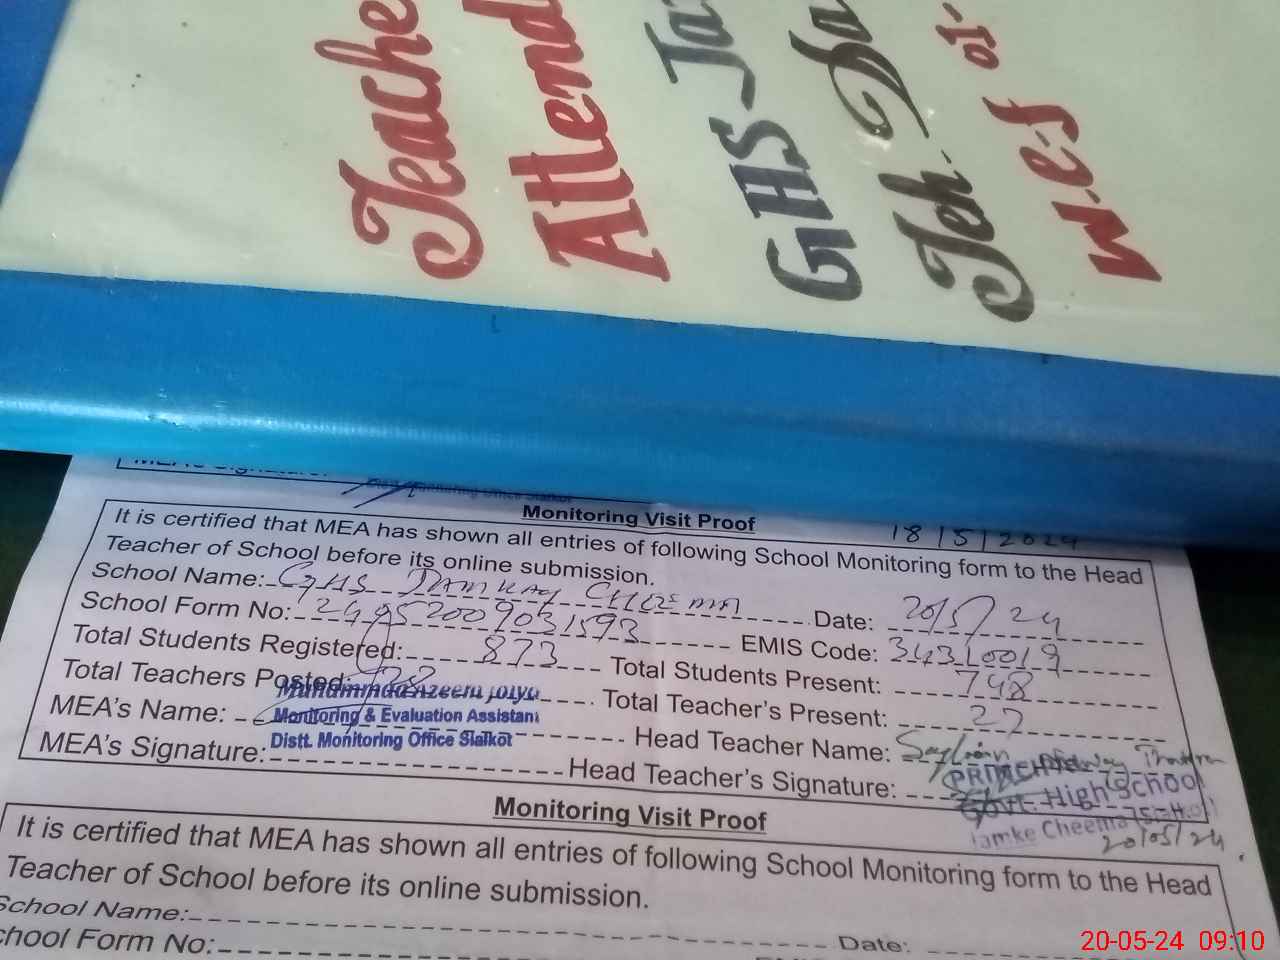 Teache
Attend
GHS Ja
Teh. Da
W.e.f 01-
MEA's Signature:
Monitoring Visit Proof
18/5/2024
It is certified that MEA has shown all entries of following School Monitoring form to the Head
Teacher of School before its online submission.
School Name: GHS CHEEMA Date: 20/5/24
School Form No: EMIS Code: 34310019
Total Students Registered: 873 Total Students Present: 748
Total Teachers Posted: Total Teacher's Present: 27
MEA's Name: Head Teacher Name:
MEA's Signature: Head Teacher's Signature:
Monitoring & Evaluation Assistant
Distt. Monitoring Office Sialkot
Govt. High School
Jamke Cheema
20/05/24
Monitoring Visit Proof
It is certified that MEA has shown all entries of following School Monitoring form to the Head
Teacher of School before its online submission.
School Name: Date:
chool Form No:
20-05-24 09:10